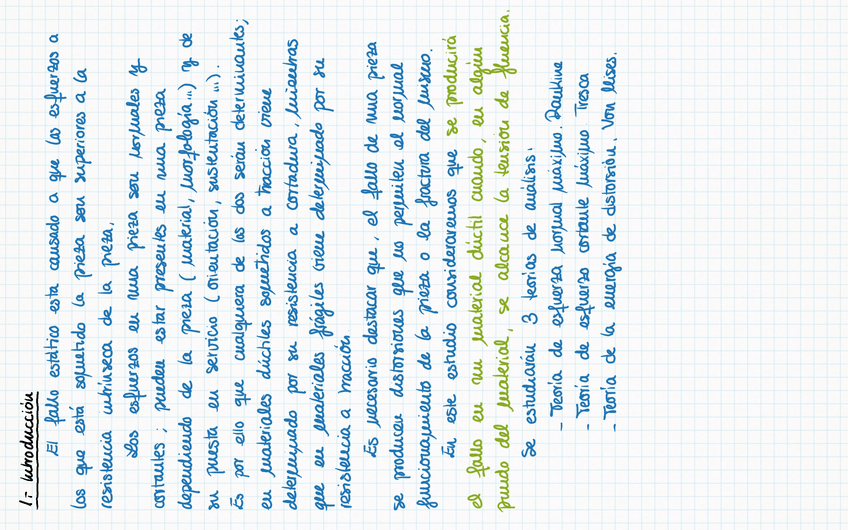 1.- Introducción
El fallo estático esta causado a que los esfuerzos a
los que está sometido la pieza son superiores a la
resistencia intrínseca de la pieza.
Los esfuerzos en una pieza son normales y
cortantes; pueden estar presentes en una pieza
dependiendo de la pieza (material, morfología...) y de
su puesta en servicio (orientación, sustentación...).
Es por ello que cualquiera de los dos serán determinantes;
en materiales dúctiles sometidos a tracción viene
determinado por su resistencia a cortadura, mientras
que en materiales frágiles viene determinado por su
resistencia a tracción.
Es necesario destacar que, el fallo de una pieza
se producen distorsiones que no permiten el normal
funcionamiento de la pieza o la fractura del mismo.
En este estudio consideraremos que se producirá
el fallo en un material dúctil cuando, en algún
punto del material, se alcance la tensión de fluencia.
Se estudiarán 3 teorías de análisis:
- Teoría de esfuerzo normal máximo. Rankine
- Teoría de esfuerzo cortante máximo Tresca
- Teoría de la energía de distorsión. Von Mises.